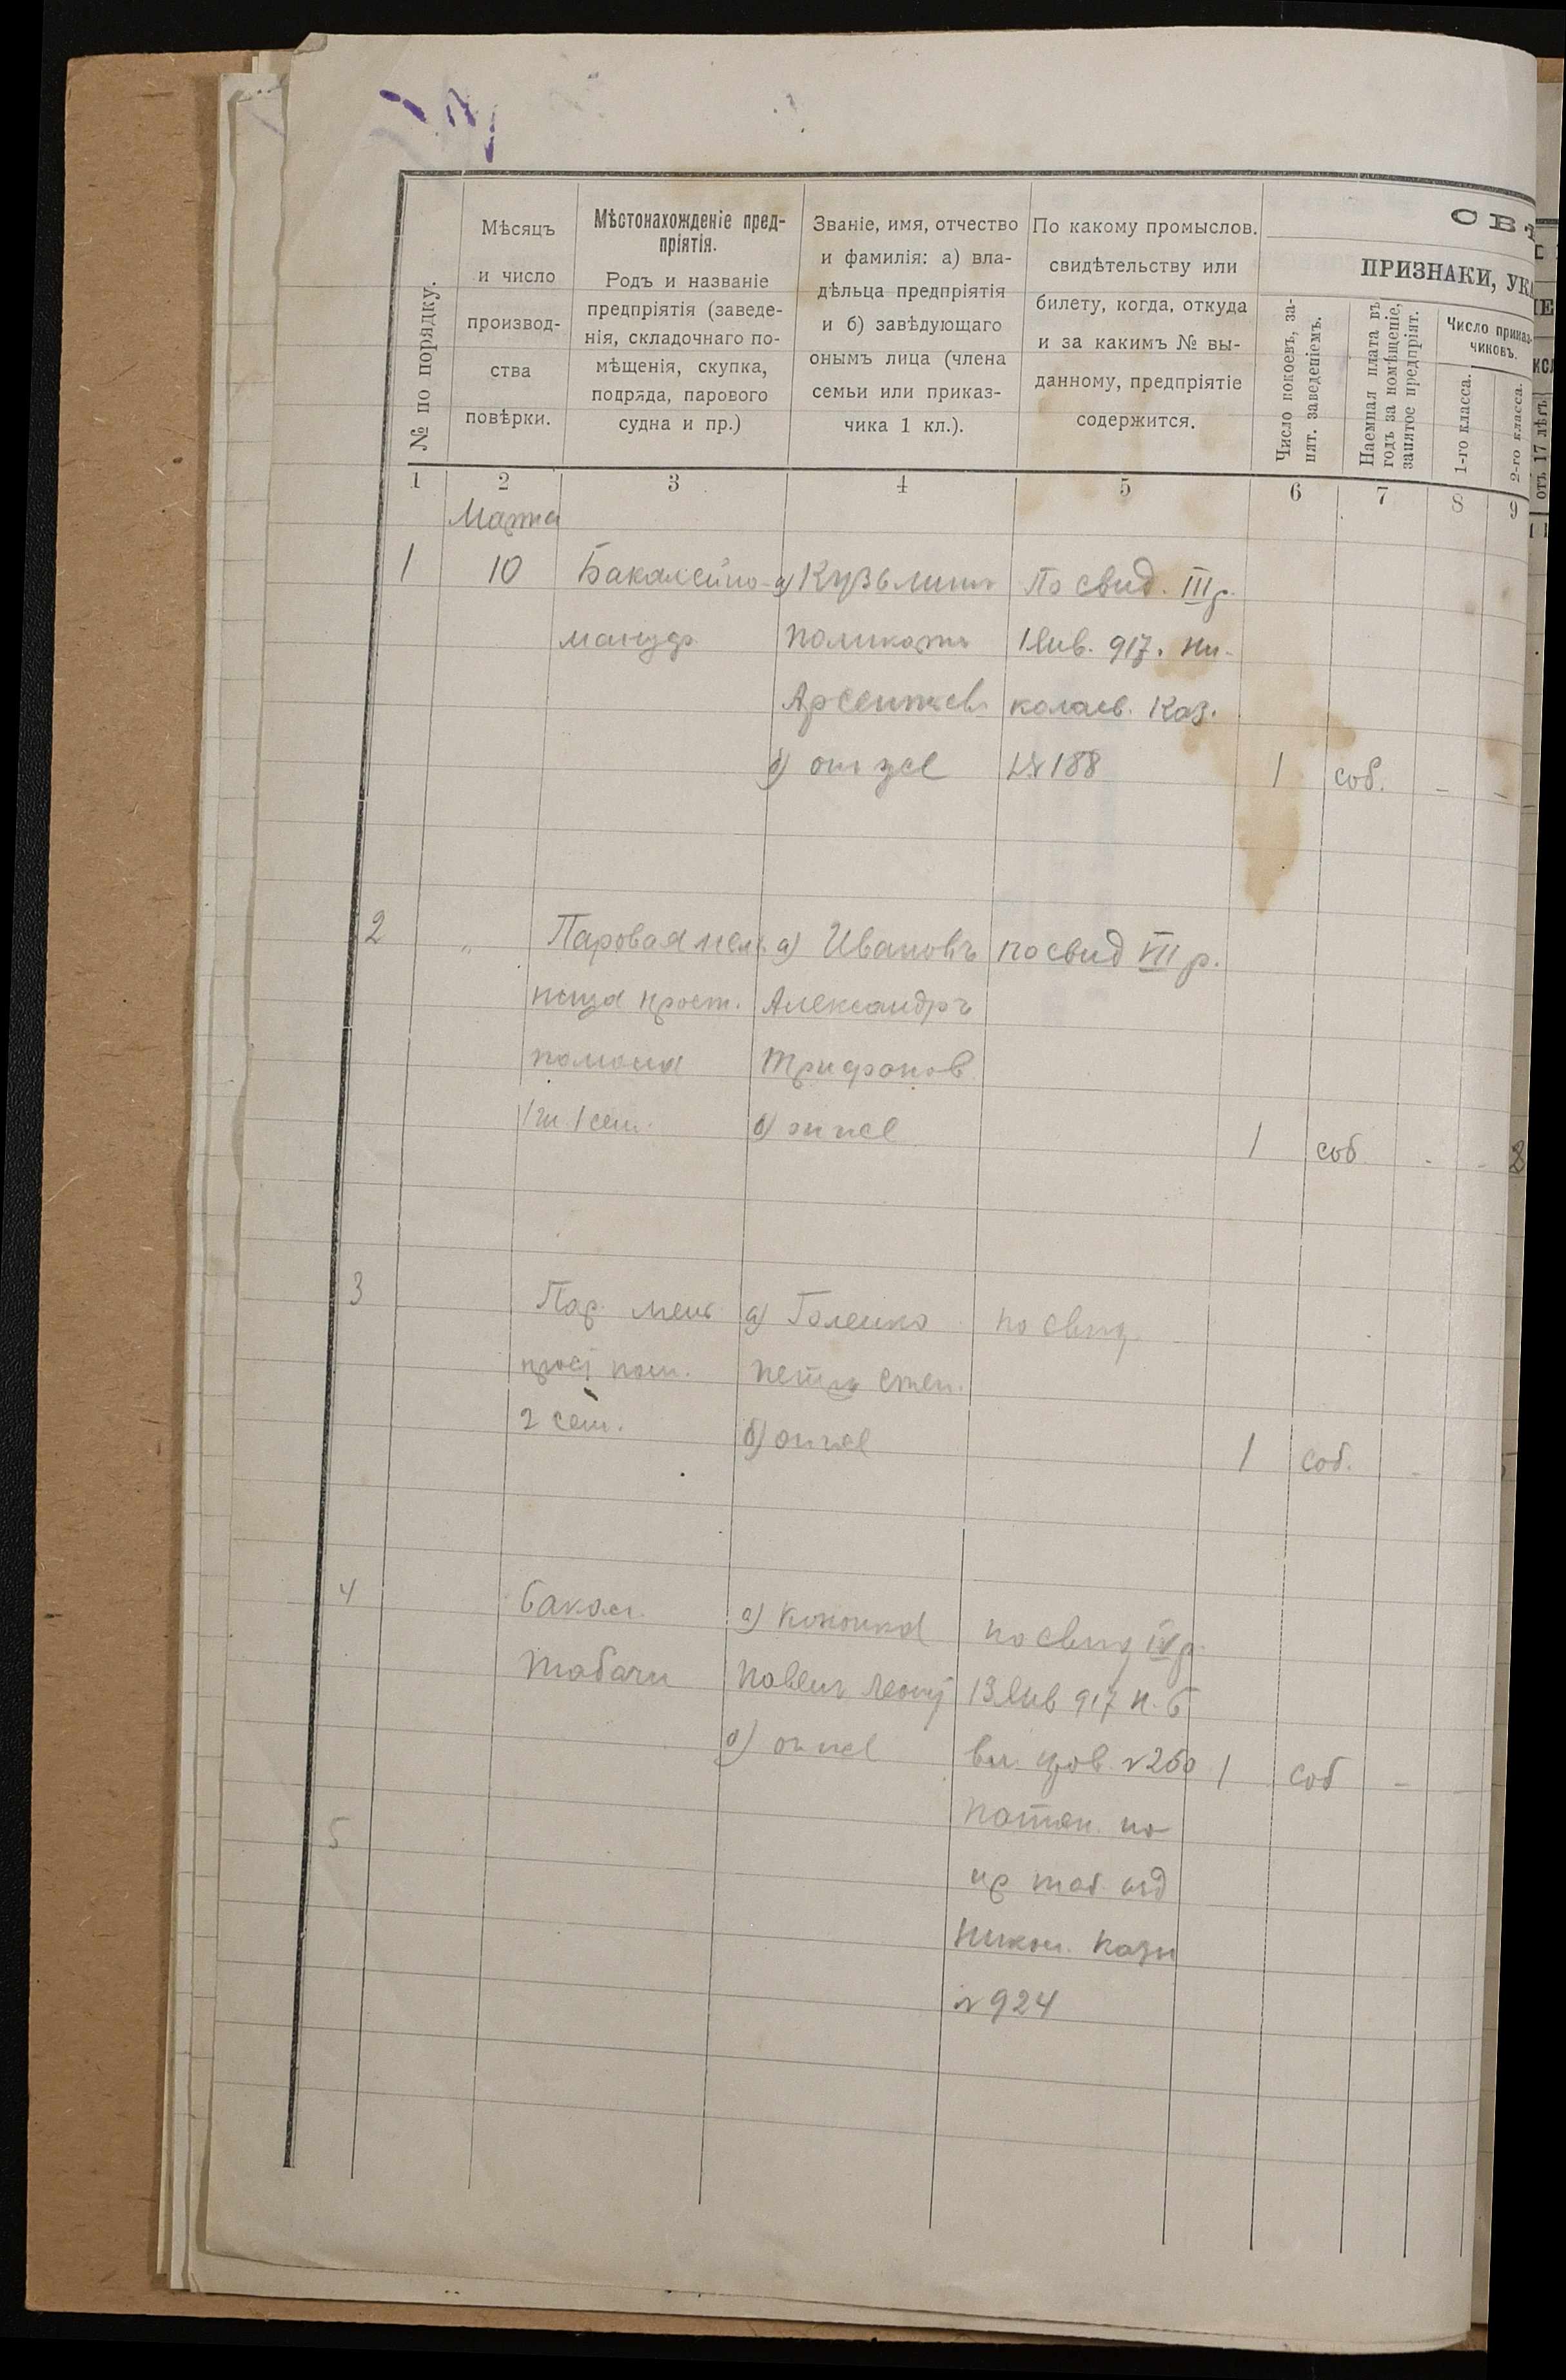 СВѢ
ПРИЗНАКИ, УК
№ по порядку.
Мѣсяцъ
и число
производ-
ства
повѣрки.
Мѣстонахожденіе пред-
пріятія.
Родъ и названіе
предпріятія (заведе-
нія, складочнаго по-
мѣщенія, скупка,
подряда, парового
судна и пр.)
Званіе, имя, отчество
и фамилія: а) вла-
дѣльца предпріятія
и б) завѣдующаго
онымъ лица (члена
семьи или приказ-
чика 1 кл.).
По какому промыслов.
свидѣтельству или
билету, когда, откуда
и за какимъ № вы-
данному, предпріятіе
содержится.
Число покоевъ, за-
нят. заведеніемъ.
Наемная плата въ
годъ за помѣщеніе,
занятое предпріят.
Число приказ-
чиковъ.
1-го класса.
2-го класса.
отъ 17 лѣтъ
1 2 3 4 5 6 7 8 9
Марта
1 10 Бакалейно- а) Кузьминъ По свид. III р.
мануф. Поликарпъ 1 янв. 917. Ни-
Арсентьев колаев. Каз.
б) онъ же № 188 1 соб. - -
2 " Паровая мел. а) Ивановъ по свид VII р.
ница прост. Александръ
помола Трифонов
1 сем. б) он же 1 соб - - 8
3 Пар. мель а) Голенко по свид.
прост пом. Петръ Степ.
2 сем. б) он же 1 соб. -
4 бакал. а) по свид IV р.
Табачн Павелъ Леонт 13 янв 917 Н. б
б) он же №260 1 соб -
5 Патен. на
таб. изд
Никол. Казн
№ 924